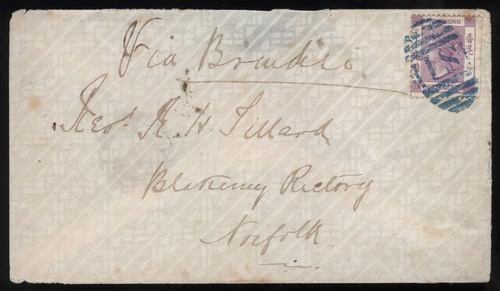 HONG KONG
Via Brindisi
Revd. R. H. Tillard
Blakeney Rectory
Norfolk